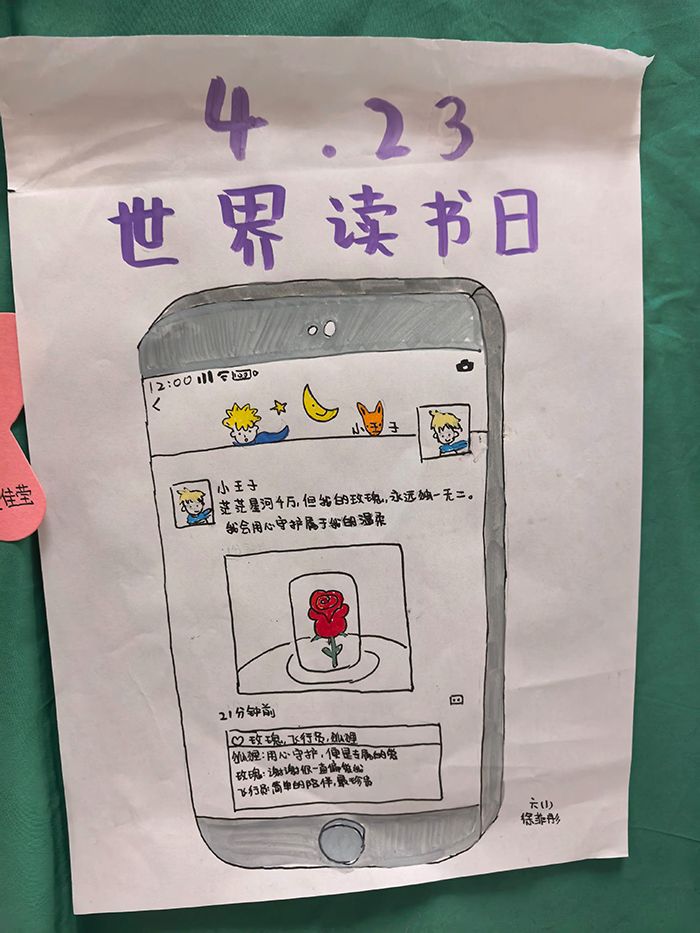 4.23
世界读书日
12:00
小王子
小王子
茫茫星河千万，但我的玫瑰，永远独一无二。
我会用心守护属于我的温柔
21分钟前
玫瑰，飞行员，狐狸
狐狸：用心守护，便是专属的爱
玫瑰：谢谢你一直偏爱我
飞行员：简单的陪伴，最珍贵
六(1)
徐菲彤
佳莹